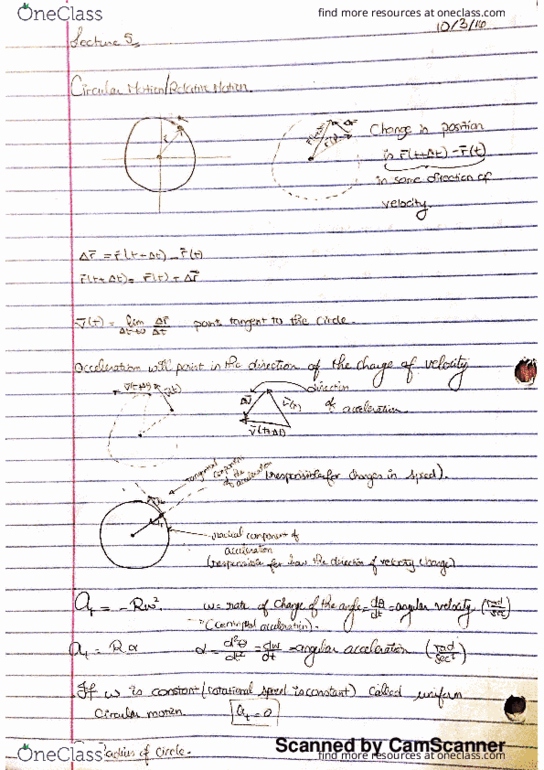 OneClass
find more resources at oneclass.com
10/3/16
Lecture 5,
Circular Motion/Relative Motion.
r
r(t+Δt) r(t) Δr
Change in position
is r̄(t+Δt) - r̄(t)
in same direction of
velocity.
Δr̄ = r̄(t+Δt) - r̄(t)
r̄(t+Δt) = r̄(t) + Δr̄
v̄(t) = lim Δt→0 Δr̄/Δt points tangent to the circle.
acceleration will point in the direction of the change of velocity
v̄(t+Δt) v̄(t)
Δv̄ v̄(t) v̄(t+Δt)
direction
of acceleration.
tangential component
of the
acceleration
(responsible for changes in speed).
radical component of
acceleration
(responsible for how the direction of velocity change)
a = -Rω². ω = rate of change of the angle = dθ/dt = angular velocity (rad/sec)
(centripetal acceleration).
a_t = Rα α = d²θ/dt² = dω/dt = angular acceleration (rad/sec²)
If ω is constant (rotational speed is constant) called uniform
circular motion. a_t = 0
radius of circle.
Scanned by CamScanner
OneClass
find more resources at oneclass.com